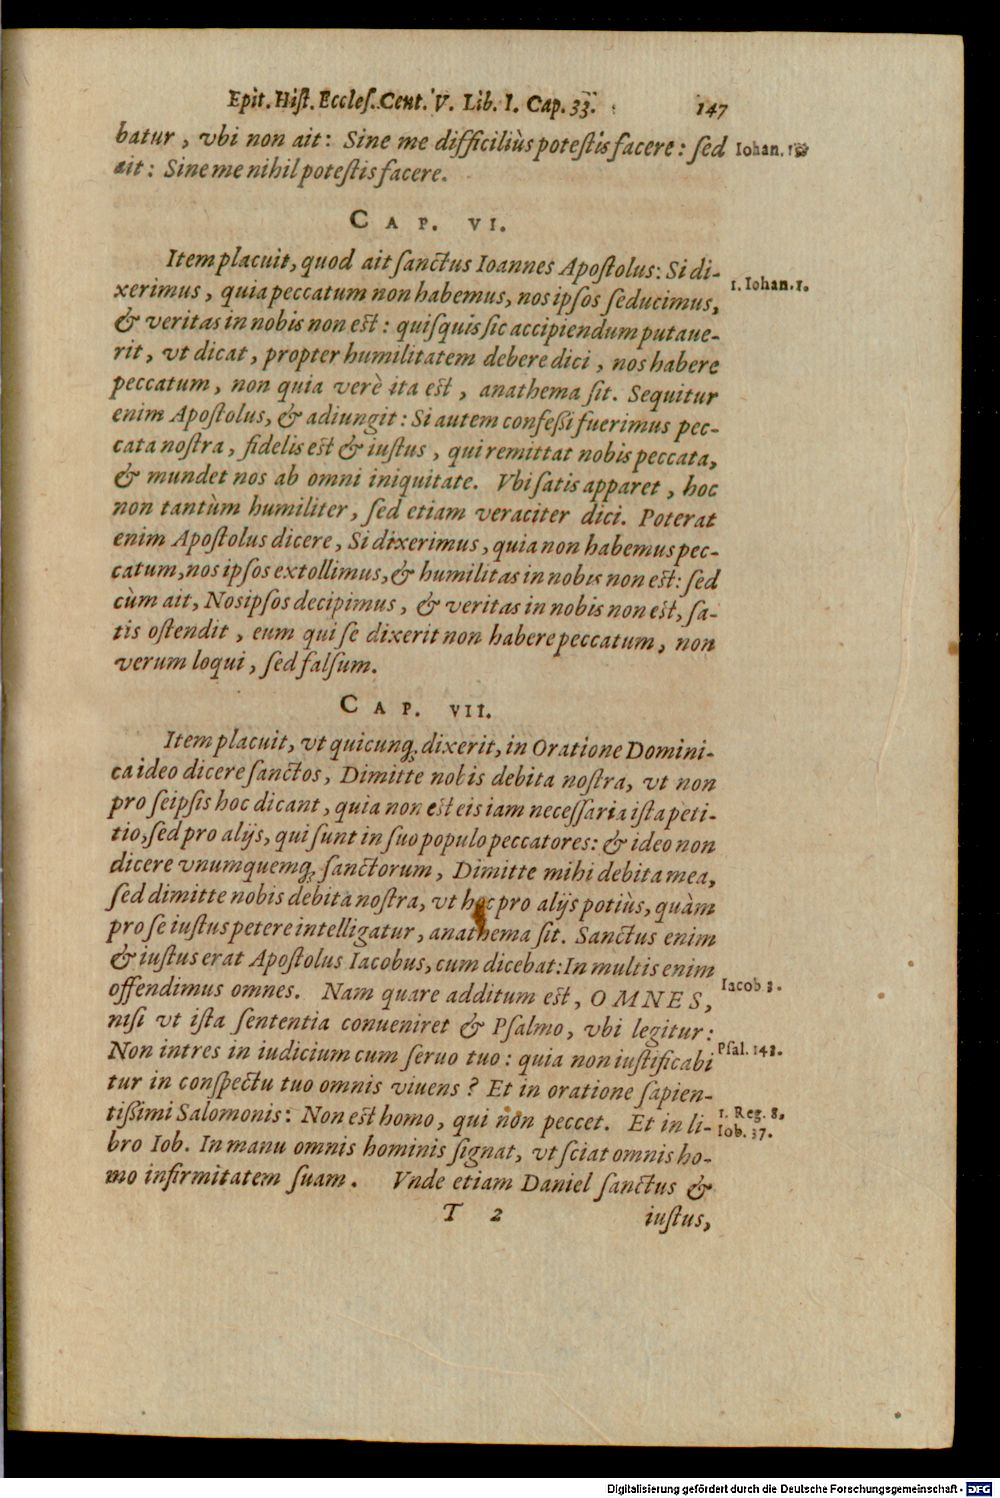 Epit. Hiſt. Eccleſ. Cent. V. Lib. I. Cap. 33. 147
batur, vbi non ait: Sine me difficiliùs poteſtis facere: ſed Iohan. 15
ait: Sine me nihil poteſtis facere.
CAP. VI.
Item placuit, quod ait ſanctus Ioannes Apoſtolus: Si di-
xerimus, quia peccatum non habemus, nos ipſos ſeducimus, 1. Iohan. 1.
& veritas in nobis non eſt: quiſquis ſic accipiendum putaue-
rit, vt dicat, propter humilitatem debere dici, nos habere
peccatum, non quia verè ita eſt, anathema ſit. Sequitur
enim Apoſtolus, & adiungit: Si autem confeſſi fuerimus pec-
cata noſtra, fidelis eſt & iuſtus, qui remittat nobis peccata,
& mundet nos ab omni iniquitate. Vbi ſatis apparet, hoc
non tantùm humiliter, ſed etiam veraciter dici. Poterat
enim Apoſtolus dicere, Si dixerimus, quia non habemus pec-
catum, nos ipſos extollimus, & humilitas in nobis non eſt: ſed
cùm ait, Nos ipſos decipimus, & veritas in nobis non eſt, ſa-
tis oſtendit, eum qui ſe dixerit non habere peccatum, non
verum loqui, ſed falſum.
CAP. VII.
Item placuit, vt quicunq; dixerit, in Oratione Domini-
ca ideo dicere ſanctos, Dimitte nobis debita noſtra, vt non
pro ſeipſis hoc dicant, quia non eſt eis iam neceſſaria iſta peti-
tio, ſed pro alijs, qui ſunt in ſuo populo peccatores: & ideo non
dicere vnumquemq; ſanctorum, Dimitte mihi debita mea,
ſed dimitte nobis debita noſtra, vt hoc pro alijs potiùs, quàm
pro ſe iuſtus petere intelligatur, anathema ſit. Sanctus enim
& iuſtus erat Apoſtolus Iacobus, cum dicebat: In multis enim
offendimus omnes. Nam quare additum eſt, OMNES, Iacob 3.
niſi vt iſta ſententia conueniret & Pſalmo, vbi legitur:
Non intres in iudicium cum ſeruo tuo: quia non iuſtificabi Pſal. 142.
tur in conſpectu tuo omnis viuens? Et in oratione ſapien-
tiſſimi Salomonis: Non eſt homo, qui non peccet. Et in li- 1. Reg. 8,
bro Iob. In manu omnis hominis ſignat, vt ſciat omnis ho- Iob. 37.
mo infirmitatem ſuam. Vnde etiam Daniel ſanctus &
T 2 iuſtus,
Digitalisierung gefördert durch die Deutsche Forschungsgemeinschaft - DFG